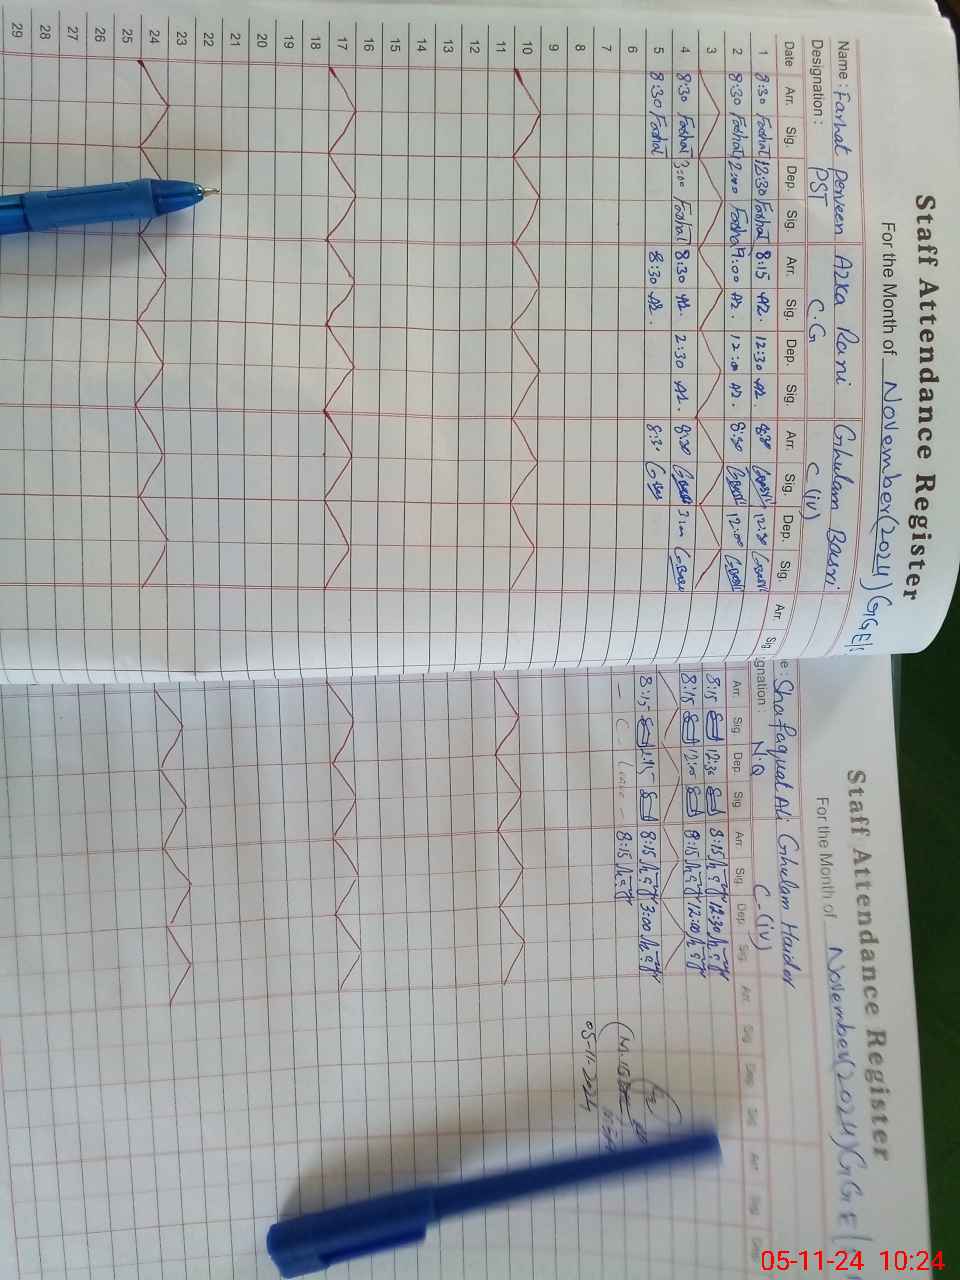 Staff Attendance Register
For the Month of November(2024) GGE/
Name : Farhat Perveen Azka Rani Ghulam Basri
Designation : PST C.G C(iv)
Date Arr. Sig. Dep. Sig. Arr. Sig. Dep. Sig. Arr. Sig. Dep. Sig. Arr. Sig.
1 8:30 Farhat 12:30 Farhat 8:15 AR. 12:30 AR. 8:30 GBasri 12:30 GBasri
2 8:30 Farhat 12:00 Farhat 9:00 AR. 12:00 AR. 8:30 GBasri 12:00 GBasri
3
4 8:30 Farhat 3:00 Farhat 8:30 AR. 2:30 AR. 8:30 GBasri 3:00 GBasri
5 8:30 Farhat 8:30 AR. 8:30
6
7
8
9
10
11
12
13
14
15
16
17
18
19
20
21
22
23
24
25
26
27
28
29
Staff Attendance Register
For the Month of November(2024) GGE/
e : Shafaqual Ali Ghulam Haider
ignation : N.Q C-(iv)
Arr. Sig. Dep Sig Arr. Sig. Dep. Sig. Arr. Sig Dep Sig Arr Sig Dep
8:15 12:30 8:15 12:30
8:15 12:00 8:15 12:00
8:15 8:15 3:00
- C - Leave - 8:15
05-11-2024
05-11-24 10:24